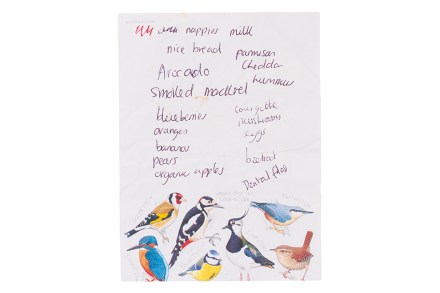 nappies milk
nice bread parmesan
Cheddar
Avocado hummus
Smoked mackerel
blueberries courgette
oranges mushrooms
bananas eggs
pears
organic apples
Dental floss